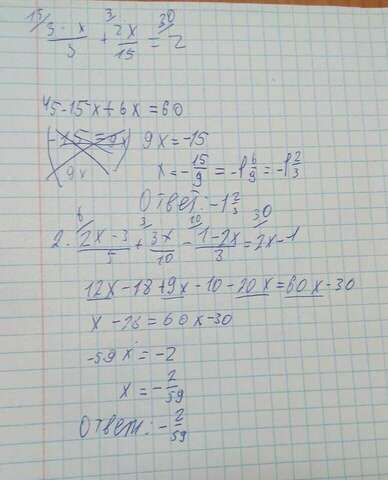 15/ 3 - x / 3 + 3/ 2x / 15 = 30/ 2
45-15x+6x=60
-15=9x 9x=-15
9x x=-15/9=-1 6/9=-1 2/3
Ответ:-1 2/3
2. 6/ 2x-3 / 5 + 3/ 3x / 10 - 10/ 1-2x / 3 = 30/ 2x-1
12x-18+9x-10-20x=60x-30
x-28=60x-30
-59x=-2
x=-2/59
Ответ:-2/59